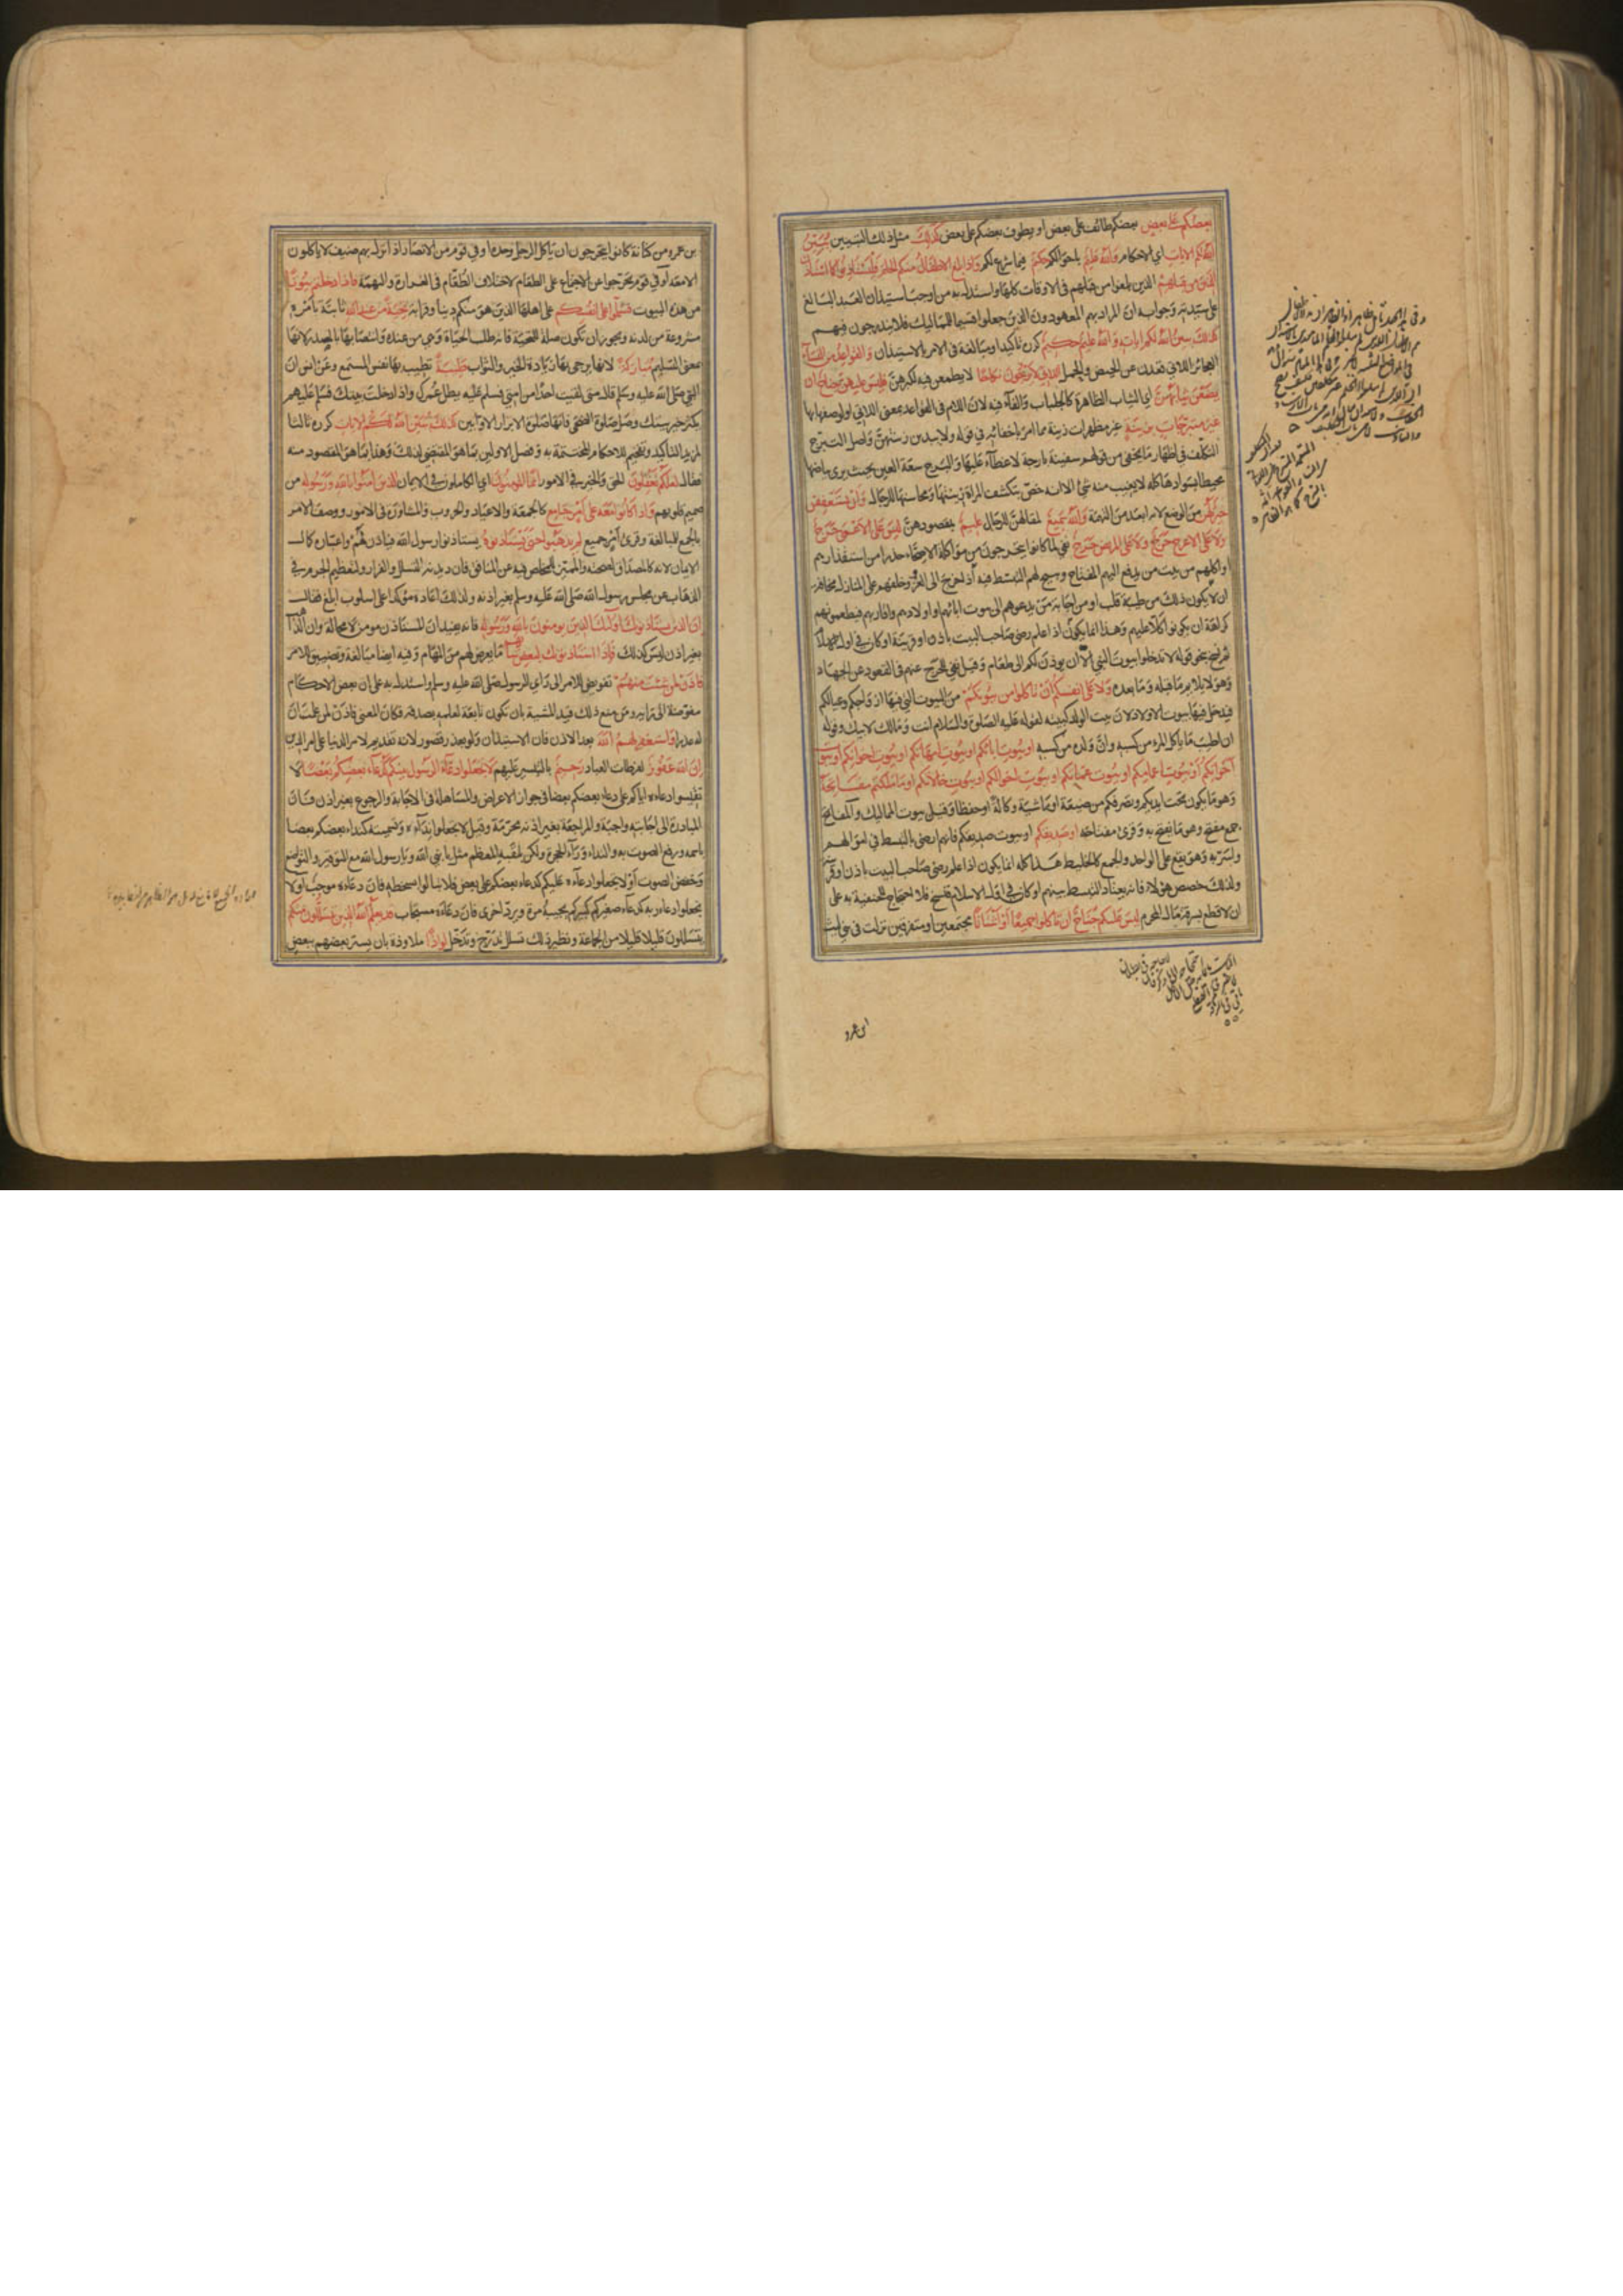 بعضكم على بعض بعضكم طائف على بعض او يطوف بعضكم على بعض كذلك مثل ذلك التبيين يبين
الله لكم الايات اي الاحكام والله عليم باحوالكم حكيم فيما شرع لكم واذا بلغ الاطفال منكم الحلم فليستاذنوا كما استاذن
الذين من قبلهم الذين بلغوا من قبلهم في الاوقات كلها واستدل به من اوجب استيذان العبد البالغ
على سيدته وجوابه ان المراد بهم المعهودون الذين جعلوا قسيما للمماليك فلا يندرجون فيهم
كذلك يبين الله لكم اياته والله عليم حكيم كرره تاكيدا ومبالغة في الامر بالاستيذان والقواعد من النساء
العجائز اللاتي قعدن عن الحيض والحمل اللاتي لا يرجون نكاحا لا يطمعن فيه لكبرهن فليس عليهن جناح ان
يضعن ثيابهن اي الثياب الظاهرة كالجلباب والفاء فيه لان اللام في القواعد بمعنى اللاتي او لوصفها بها
غير متبرجات بزينة غير مظهرات زينة مما امرن باخفائه في قوله ولا يبدين زينتهن واصل التبرج
التكلف في اظهار ما يخفى من قولهم سفينة بارجة لا غطاء عليها والبرج سعة العين بحيث يرى بياضها
محيطا بسوادها كله لا يغيب منه شئ الا انه خص بتكشف المراة زينتها ومحاسنها للرجال وان يستعففن
خير لهن من الوضع لانه ابعد من التهمة والله سميع لمقالهن للرجال عليم بمقصودهن ليس على الاعمى حرج
ولا على الاعرج حرج ولا على المريض حرج نفي لما كانوا يتحرجون من مؤاكلة الاصحاء حذرا من استقذارهم
او اكلهم من بيت من يدفع اليهم المفتاح ويبيح لهم التبسط فيه اذا خرج الى الغزو وخلفهم على المنازل مخافة
ان لا يكون ذلك من طيبة قلب او من اجابة من يدعوهم الى بيوت ابائهم واولادهم واقاربهم فيطعمونهم
كراهة ان يكونوا كلا عليهم وهذا انما يكون اذا علم رضى صاحب البيت باذن او قرينة او كان في اول الاسلام
ثم نسخ بنحو قوله لا تدخلوا بيوت النبي الا ان يوذن لكم الى طعام وقيل نفي للحرج عنهم في القعود عن الجهاد
وهو لا يلايم ما قبله وما بعده ولا على انفسكم ان تاكلوا من بيوتكم من البيوت التي فيها ازواجكم وعيالكم
فيدخل فيها بيوت الاولاد لان بيت الولد كبيته لقوله عليه الصلوة والسلام انت ومالك لابيك وقوله
ان اطيب ما ياكل المرء من كسبه وان ولده من كسبه او بيوت ابائكم او بيوت امهاتكم او بيوت اخوانكم او بيوت
اخواتكم او بيوت اعمامكم او بيوت عماتكم او بيوت اخوالكم او بيوت خالاتكم او ما ملكتم مفاتحه
وهو ما يكون تحت ايديكم وتصرفكم من ضيعة او ماشية وكالة او حفظا وقيل بيوت المماليك والمفاتح
جمع مفتح وهو ما يفتح به وقرئ مفتاحه او صديقكم او بيوت صديقكم فانهم ارضى بالتبسط في اموالهم
واسر به وهو يقع على الواحد والجمع كالخليط هذا كله انما يكون اذا علم رضى صاحب البيت باذن او قرينة
ولذلك خصص هؤلاء فانه يعتاد التبسط بينهم او كان في اول الاسلام فنسخ فلا احتجاج للحنفية به على
ان لا قطع بسرقة مال المحرم ليس عليكم جناح ان تاكلوا جميعا او اشتاتا مجتمعين او متفرقين نزلت في بني ليث
بن عمرو من كنانة كانوا يتحرجون ان ياكل الرجل وحده او في قوم من الانصار اذا نزل بهم ضيف لا ياكلون
الا معه او في قوم تحرجوا عن الاجتماع على الطعام لاختلاف الطعام في القذارة والنهمة فاذا دخلتم بيوتا
من هذه البيوت فسلموا على انفسكم على اهلها الذين هم منكم دينا وقرابة تحية من عند الله ثابتة بامره
مشروعة من لدنه ويجوز ان تكون صلة للتحية فانه طلب الحياة وهي من عنده وانتصابها بالمصدر لانها
بمعنى التسليم مباركة لانها يرجى بها زيادة الخير والثواب طيبة تطيب بها نفس المستمع وعن انس ان
النبي صلى الله عليه وسلم قال متى لقيت احدا من امتي فسلم عليه يطل عمرك واذا دخلت بيتك فسلم عليهم
يكثر خير بيتك وصل صلوة الضحى فانها صلوة الابرار الاوابين كذلك يبين الله لكم الايات كرره ثالثا
لمزيد التاكيد وتفخيم للاحكام المختتمة به وفصل الاولين بما هو المقتضي لذلك وهذا بما هو المقصود منه
فقال لعلكم تعقلون الحق والخير في الامور انما المؤمنون اي الكاملون في الايمان الذين امنوا بالله ورسوله من
صميم قلوبهم واذا كانوا معه على امر جامع كالجمعة والاعياد والحروب والمشاورة في الامور ووصف الامر
بالجمع للمبالغة وقرئ امر جميع لم يذهبوا حتى يستاذنوه يستاذنوا رسول الله فياذن لهم واعتباره في كمال
الايمان لانه كالمصداق لصحته والمميز للمخلص فيه عن المنافق فان ديدنه التسلل والفرار ولتعظيم الجرم في
الذهاب عن مجلس رسول الله صلى الله عليه وسلم بغير اذنه ولذلك اعاده مؤكدا على اسلوب ابلغ فقال
ان الذين يستاذنونك اولئك الذين يومنون بالله ورسوله فانه يفيد ان المستاذن مومن لا محالة وان الذاهب
بغير اذن ليس كذلك فاذا استاذنوك لبعض شانهم ما يعرض لهم من المهام وفيه ايضا مبالغة وتضييق الامر
فاذن لمن شئت منهم تفويض للامر الى راي الرسول صلى الله عليه وسلم واستدل به على ان بعض الاحكام
مفوضة الى رايه ومن منع ذلك قيد المشية بان تكون تابعة لعلمه بصدقه فكان المعنى فاذن لمن علمت ان
له عذرا واستغفر لهم الله بعد الاذن فان الاستيذان ولو بعذر قصور لانه تقديم لامر الدنيا على امر الدين
ان الله غفور لفرطات العباد رحيم بالتيسير عليهم لا تجعلوا دعاء الرسول بينكم كدعاء بعضكم بعضا لا
تقيسوا دعاءه اياكم على دعاء بعضكم بعضا في جواز الاعراض والمساهلة في الاجابة والرجوع بغير اذن فان
المبادرة الى اجابته واجبة والمراجعة بغير اذنه محرمة وقيل لا تجعلوا نداءه وتسميته كنداء بعضكم بعضا
باسمه ورفع الصوت به والنداء وراء الحجرة ولكن بلقبه المعظم مثل يا نبي الله ويا رسول الله مع التوقير والتواضع
وخفض الصوت او لا تجعلوا دعاءه عليكم كدعاء بعضكم على بعض فلا تبالوا بسخطه فان دعاءه موجب او لا
تجعلوا دعاءه ربه كدعاء صغيركم كبيركم يجيبه مرة ويرده اخرى فان دعاءه مستجاب قد يعلم الله الذين يتسللون منكم
يتسللون قليلا قليلا من الجماعة ونظير تسلل تدرج وتدخل لواذا ملاوذة بان يستر بعضهم ببعض